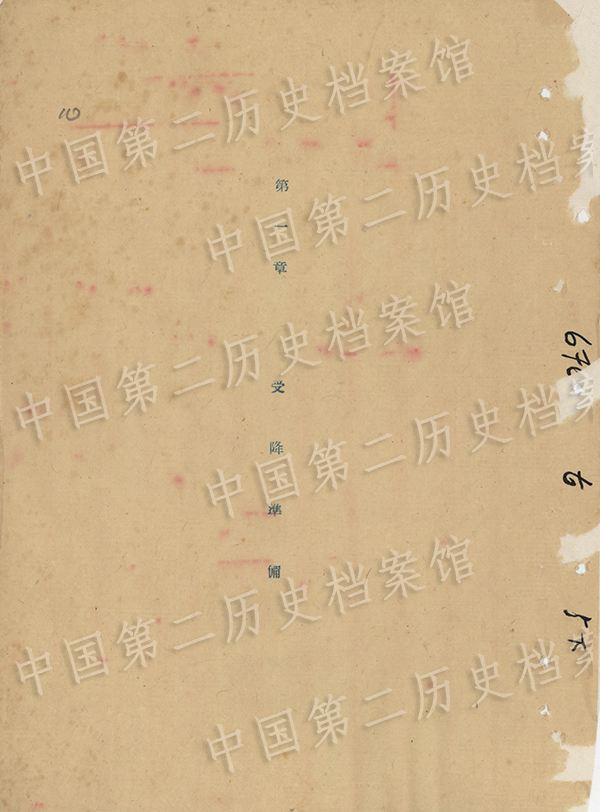 第一章 受降準備
中国第二历史档案馆
中国第二历史档案馆
中国第二历史档案馆
中国第二历史档案馆
中国第二历史档案馆
中国第二历史档案馆